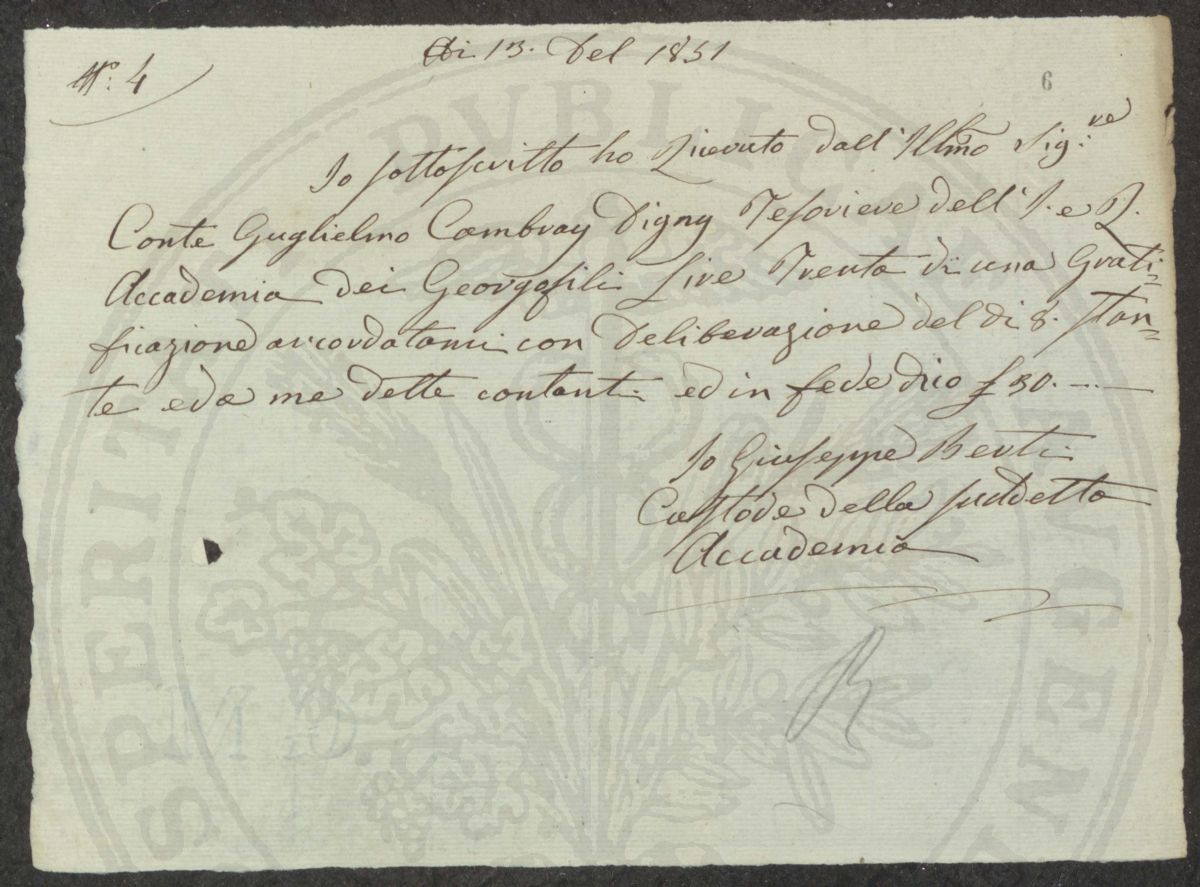 Adi 13. Del 1831
N.º 4
6
Io sottoscritto ho Ricevuto dall' Ill.mo Sig.re
Conte Guglielmo Cambray Digny Tesoriere dell' I. e R.
Accademia dei Georgofili Lire Trenta di una Grati-
ficazione accordatami con Deliberazione del di 8. Stan-
te ed a me dette contanti ed in fede dico £ 30. ---
Io Giuseppe Berti
Custode della suddetta
Accademia
PROSPERITATI PUBLICAE AUGENDAE